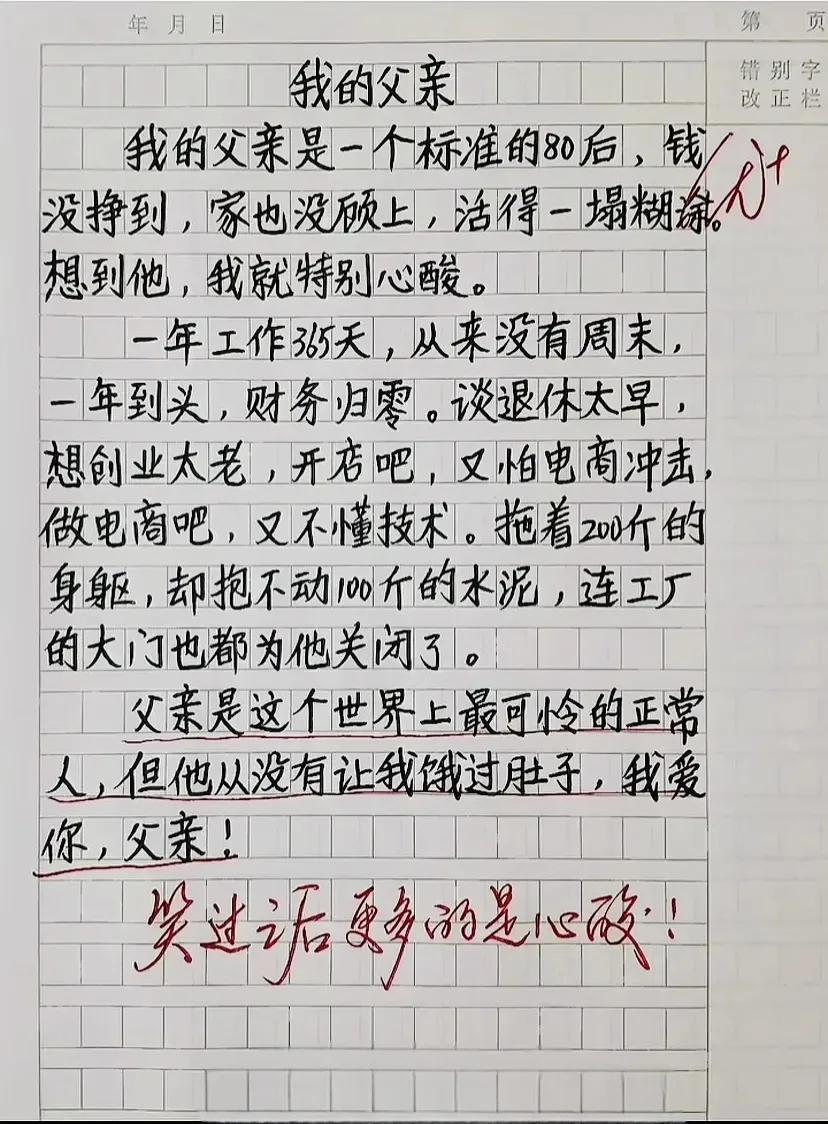 年 月 日
第 页
错别字
改正栏
我的父亲
我的父亲是一个标准的80后，钱
没挣到，家也没顾上，活得一塌糊涂。
想到他，我就特别心酸。
一年工作365天，从来没有周末，
一年到头，财务归零。谈退休太早，
想创业太老，开店吧，又怕电商冲击，
做电商吧，又不懂技术。拖着200斤的
身躯，却抱不动100斤的水泥，连工厂
的大门也都为他关闭了。
父亲是这个世界上最可怜的正常
人，但他从没有让我饿过肚子，我爱
你，父亲！
笑过之后更多的是心酸！